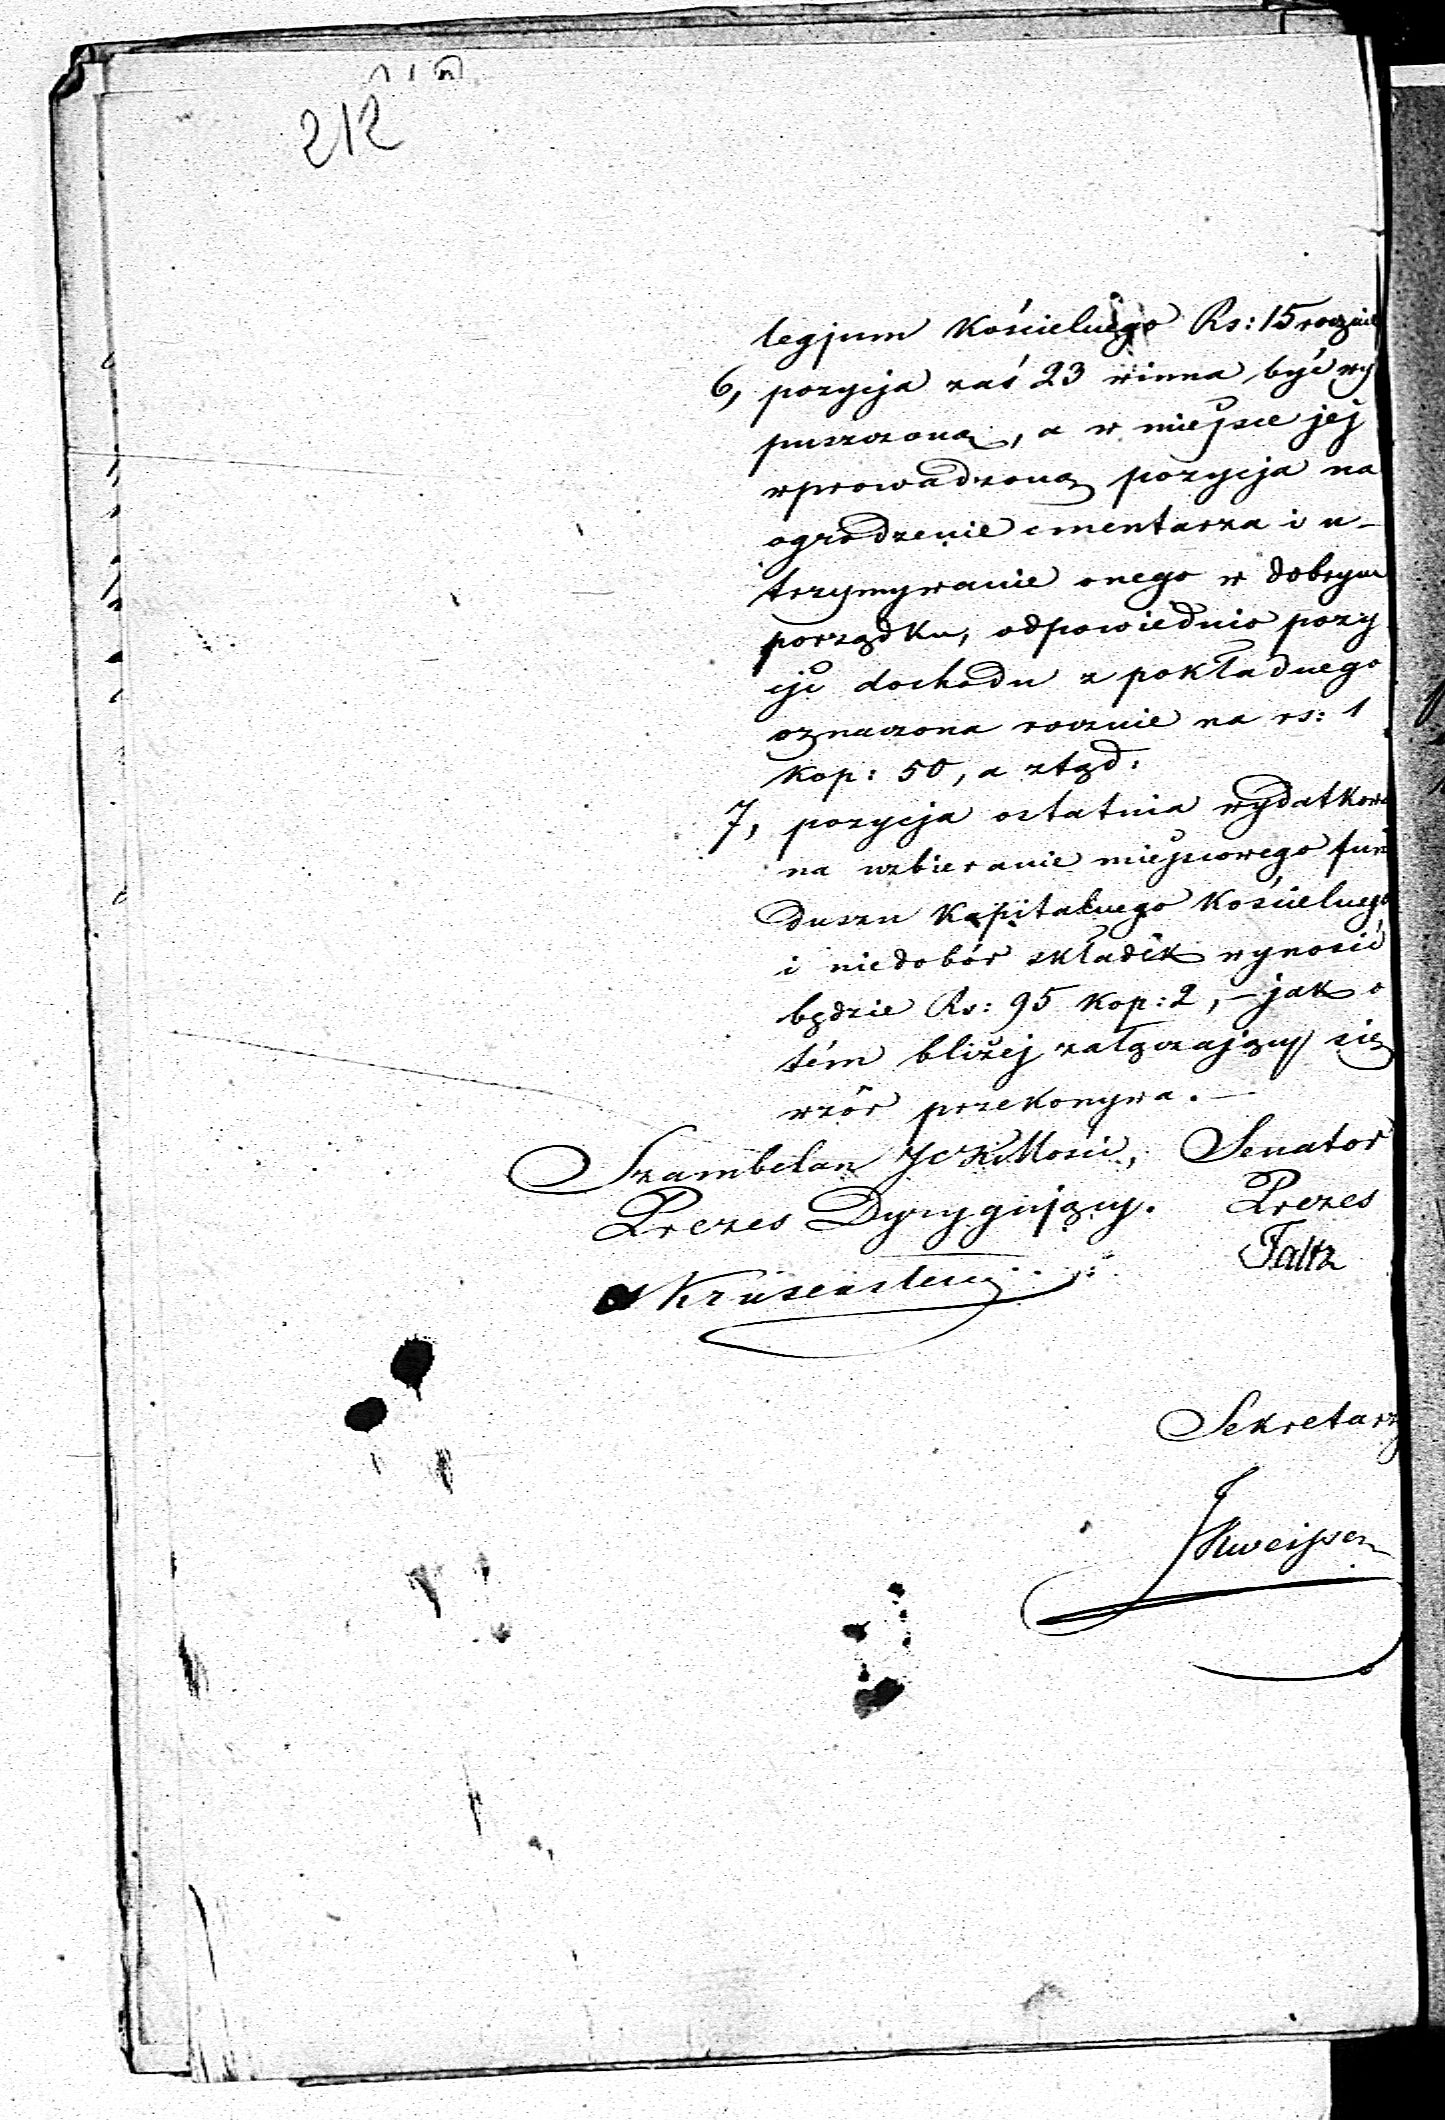 212
legjum Kościelnego Rs: 15 rocznie
6, pozycja zaś 23 winna być wy
puszczoną, a w miejsce jej
wprowadzoną pozycja na
ogrodzenie cmentarza i u-
trzymywanie onego w dobrym
porządku, odpowiednio pozy
cji dochodu z pokładnego
oznaczona rocznie na rs: 1
kop: 50, a ztąd:
7, pozycja ostatnia wydatkowa
na uzbieranie miejscowego fun
duszu Kapitalnego Kościelnego
i niedobór składek wynosić
będzie Rs: 95 kop: 2, – jak o
tém bliżej załączający się
wzór przekonywa. –
Szambelan JCKMości, Senator
Prezes Dyrygujący. Prezes
Faltz
Krusenstern
Sekretarz